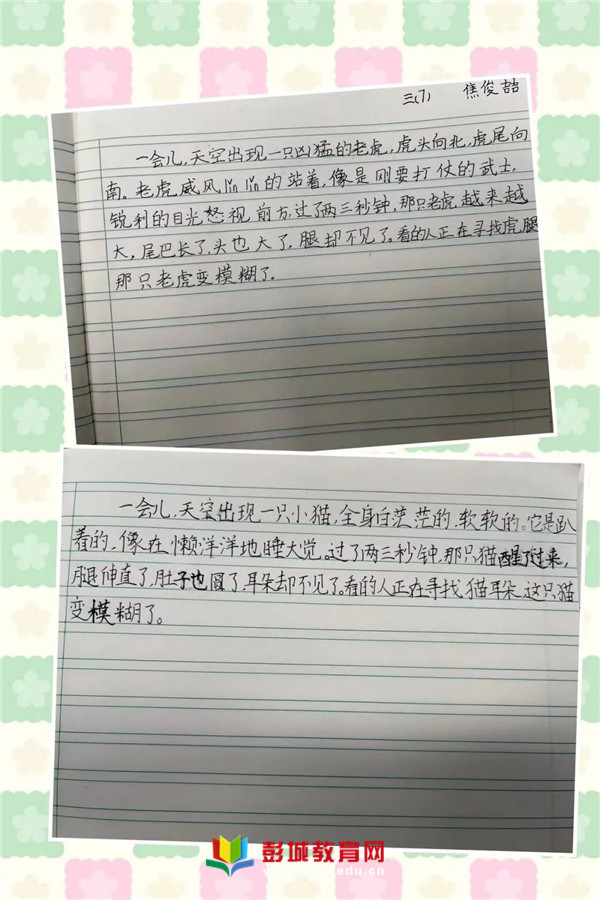 三(7) 焦俊喆
一会儿,天空出现一只凶猛的老虎,虎头向北,虎尾向
南。老虎威风lin lin的站着,像是刚要打仗的武士,
锐利的目光怒视前方,过了两三秒钟,那只老虎越来越
大,尾巴长了,头也大了,腿却不见了。看的人正在寻找虎腿
那只老虎变模糊了。
一会儿,天空出现一只小猫,全身白茫茫的、软软的。它是趴
着的,像在懒洋洋地睡大觉。过了两三秒钟,那只猫醒了过来,
腿伸直了,肚子也圆了,耳朵却不见了。看的人正在寻找猫耳朵,这只猫
变模糊了。
彭城教育网